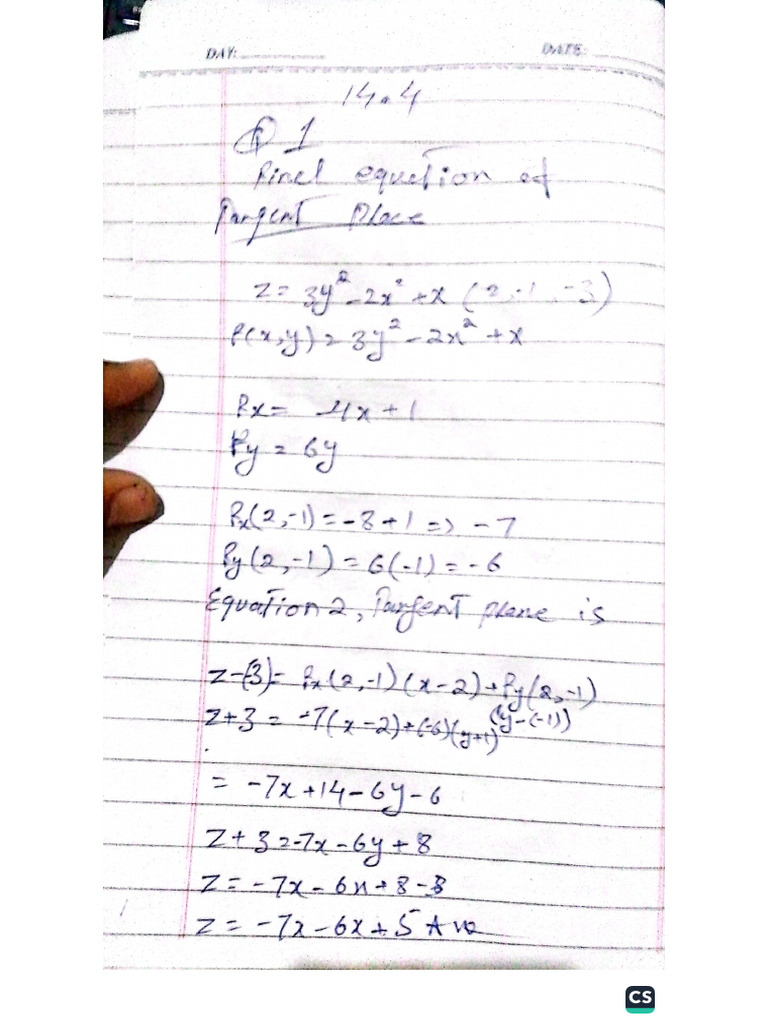 DAY: DATE:
14.4
Q 1
Find equation of
Tangent Place
z = 3y² - 2x² + x (2, -1, -3)
f(x,y) = 3y² - 2x² + x
fx = -4x + 1
fy = 6y
fx(2,-1) = -8+1 => -7
fy(2,-1) = 6(-1) = -6
Equation 2, Tangent plane is
z-(-3) = fx(2,-1)(x-2)+fy(2,-1)
(y-(-1))
z+3 = -7(x-2)+(-6)(y+1)
= -7x+14-6y-6
z+3=-7x-6y+8
z = -7x-6x+8-3
z = -7x-6x+5 Ans
CS